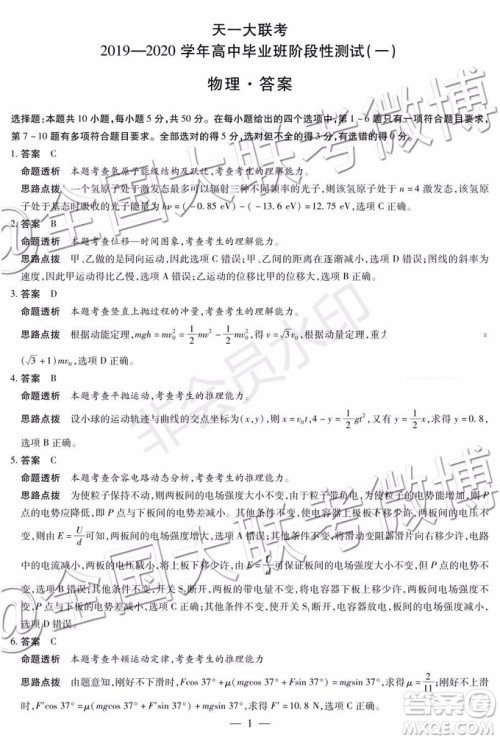 天一大联考
2019—2020 学年高中毕业班阶段性测试(一)
物理·答案
选择题:本题共 10 小题,每小题 5 分,共 50 分。在每小题给出的四个选项中,第 1~6 题只有一项符合题目要求,
第 7~10 题有多项符合题目要求。全部选对的得 5 分,选对但不全的得 3 分,有选错的得 0 分。
1. 答案 C
命题透析 本题考查氢原子结构及跃迁,考查考生的理解能力。
思路点拨 一个氢原子处于激发态最多可以辐射三种不同频率的光子,则该氢原子处于 n = 4 激发态,该氢原
子处于基态时吸收的光子能量为 hν = (-0.85 eV) - (-13.6 eV) = 12.75 eV,选项 C 正确。
2. 答案 B
命题透析 本题考查位移—时间图象,考查考生的理解能力。
思路点拨 甲、乙做的是同向运动,因此选项 C 错误;甲、乙间的距离逐渐增大,因此选项 D 错误;图线的斜率为
速度,因此甲运动得比乙慢,选项 A 错误;乙运动的位移比甲的位移大,选项 B 正确。
3. 答案 D
命题透析 本题考查竖直上抛过程的运动,考查考生的理解能力。
思路点拨 根据动能定理,mgh = mv₀² = 1/2 mv² - 1/2 mv₀²,得 v = √3 v₀,根据动量定理,重力
(√3 + 1)mv₀,选项 D 正确。
4. 答案 B
命题透析 本题考查平抛运动,考查考生的推理能力。
思路点拨 设小球的运动轨迹与曲线的交点坐标为(x,y),则 x = v₀t,4 - y = 1/2 gt²,又有 y = 1/2 x²,求得 0.8,
选项 B 正确。
5. 答案 C
命题透析 本题考查含容电路动态分析,考查考生的推理能力。
思路点拨 为使粒子保持不动,则两板间的电场强度大小不变,由于粒子带负电,为使粒子的电势能增加,则 P
点的电势应降低,即 P 点与下板间的电势差减小。其他条件不变,使电容器上极板下移少许,两板间的电压不
变,则由 E = U/d 可知,两板间的电场强度增大,选项 A 错误;其他条件不变,将滑动变阻器滑片向右移少许,电路
中的电流减小,两板间的电压减小,将上板下移少许,由 E = U/d 可保证板间的电场强度大小不变,P 点与下板的
电势差不变,选项 B 错误;其他条件不变,开关 S₂ 断开,两板的带电量不变,将下板上移少许,两板间的电场强度
不变,P 点与下板的电势差减小,选项 C 正确;其他条件不变,开关 S₁ 断开,电容器放电,板间的电场强度减小,
选项 D 错误。
6. 答案 C
命题透析 本题考查牛顿运动定律,考查考生的推理能力。
思路点拨 由题意知,刚好不下滑时,Fcos 37° + μ(mgcos 37° + Fsin 37°) = mgsin 37°,得 μ = 2/11;刚好不上滑
时,F′cos 37° = μ(mgcos 37° + F′sin 37°) + mgsin 37°,求得 F′ = 10.8 N,选项 C 正确。
— 1 —
@全国大联考微博
非会员水印
@全国大联考微博
答案圈